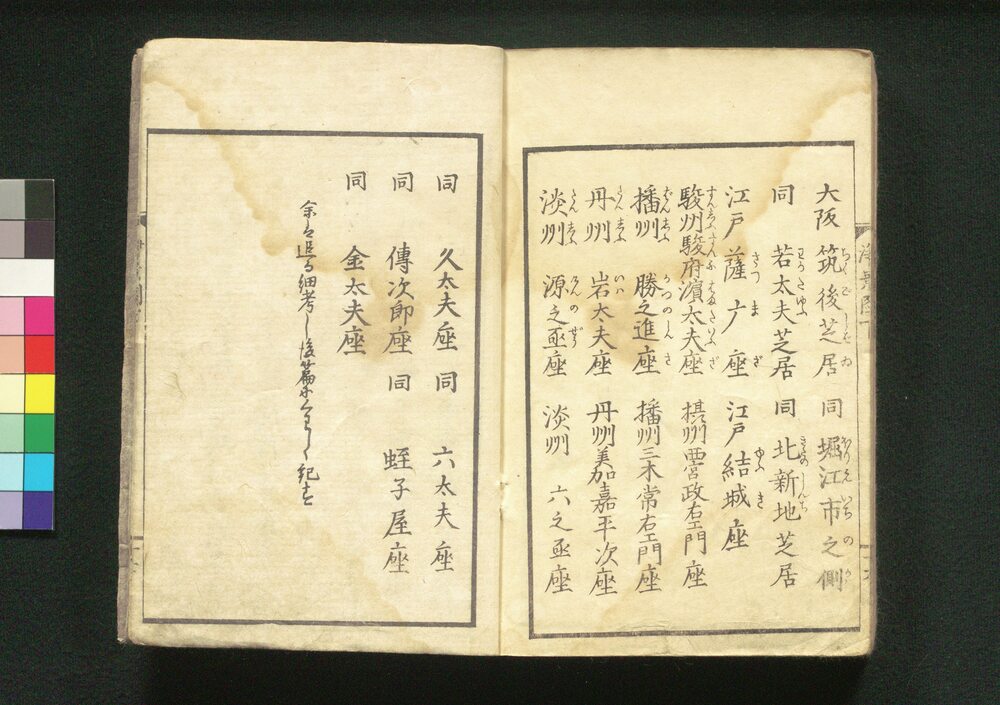 大阪 筑後芝居 同 堀江市之側
同 若太夫芝居 同 北新地芝居
江戸 薩广座 江戸 結城座
駿州駿府濵太夫座 摂州西宮政右エ門座
播州 勝之進座 播州三木常右エ門座
丹州 岩太夫座 丹州美加嘉平次座
淡州 源之亟座 淡州 六之亟座
同 久太夫座 同 六太夫座
同 傳次郎座 同 蛭子屋座
同 金太夫座
余は追る細考し後篇に
紀す